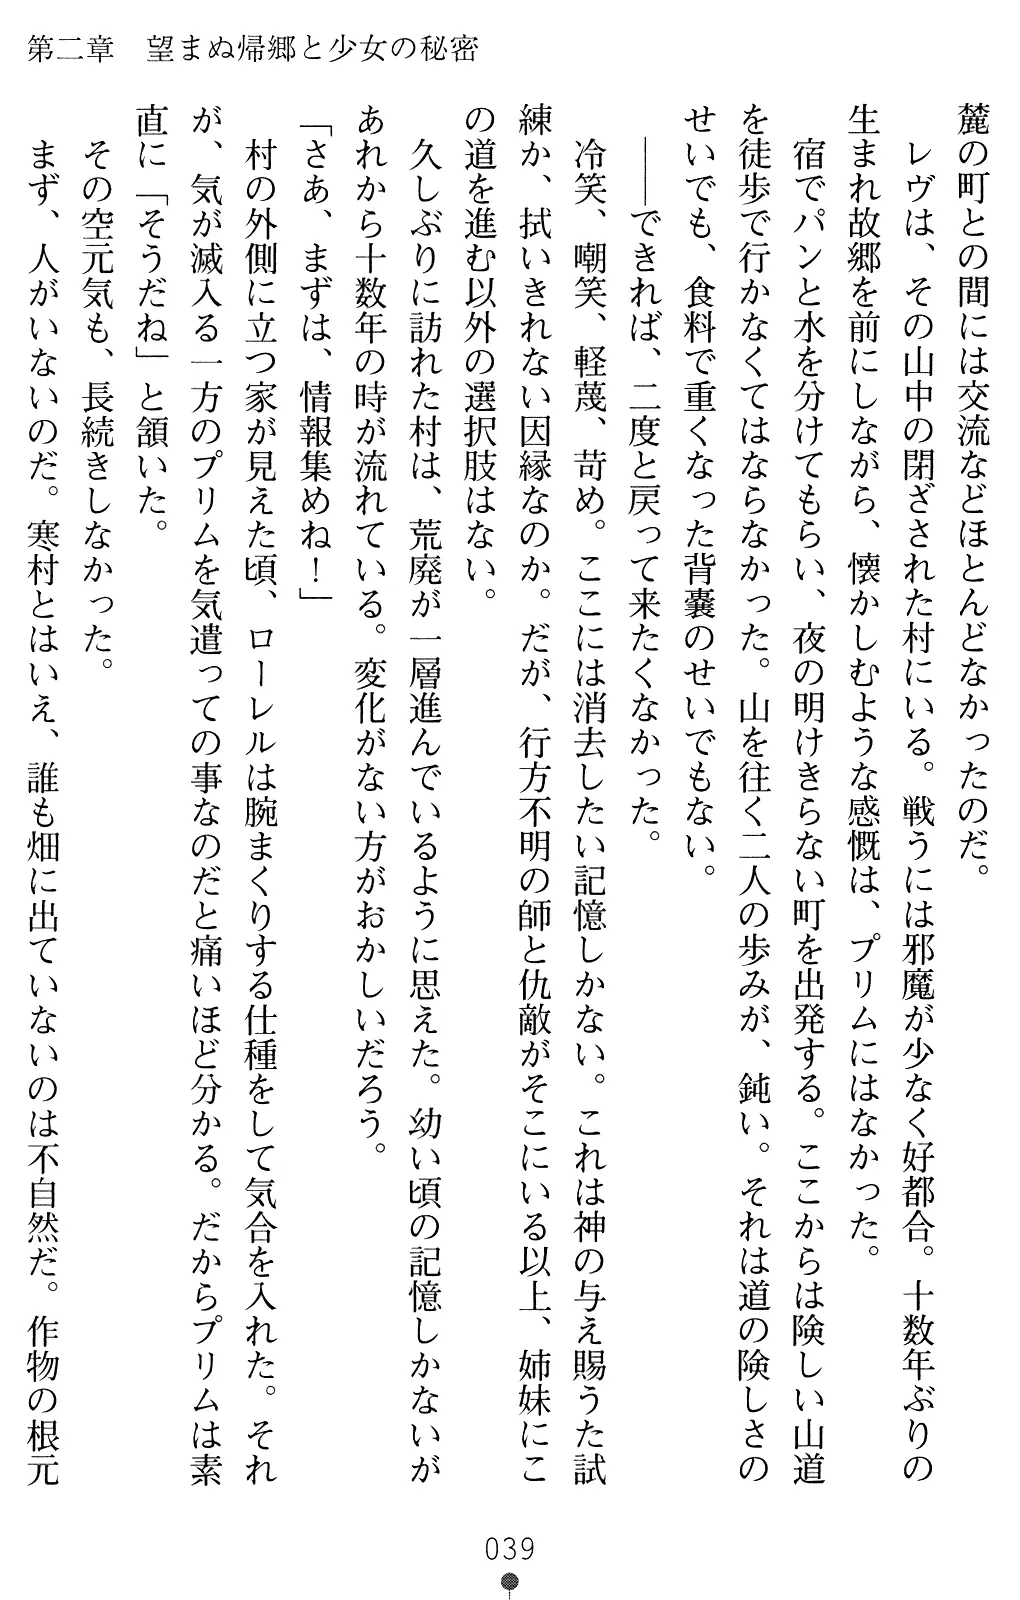 第二章　望まぬ帰郷と少女の秘密
麓の町との間には交流などほとんどなかったのだ。
　レヴは、その山中の閉ざされた村にいる。戦うには邪魔が少なく好都合。十数年ぶりの
生まれ故郷を前にしながら、懐かしむような感慨は、プリムにはなかった。
　宿でパンと水を分けてもらい、夜の明けきらない町を出発する。ここからは険しい山道
を徒歩で行かなくてはならなかった。山を往く二人の歩みが、鈍い。それは道の険しさの
せいでも、食料で重くなった背嚢のせいでもない。
　――できれば、二度と戻って来たくなかった。
　冷笑、嘲笑、軽蔑、苛め。ここには消去したい記憶しかない。これは神の与え賜うた試
練か、拭いきれない因縁なのか。だが、行方不明の師と仇敵がそこにいる以上、姉妹にこ
の道を進む以外の選択肢はない。
　久しぶりに訪れた村は、荒廃が一層進んでいるように思えた。幼い頃の記憶しかないが
あれから十数年の時が流れている。変化がない方がおかしいだろう。
「さあ、まずは、情報集めね！」
　村の外側に立つ家が見えた頃、ローレルは腕まくりする仕種をして気合を入れた。それ
が、気が滅入る一方のプリムを気遣っての事なのだと痛いほど分かる。だからプリムは素
直に「そうだね」と頷いた。
　その空元気も、長続きしなかった。
　まず、人がいないのだ。寒村とはいえ、誰も畑に出ていないのは不自然だ。作物の根元
039